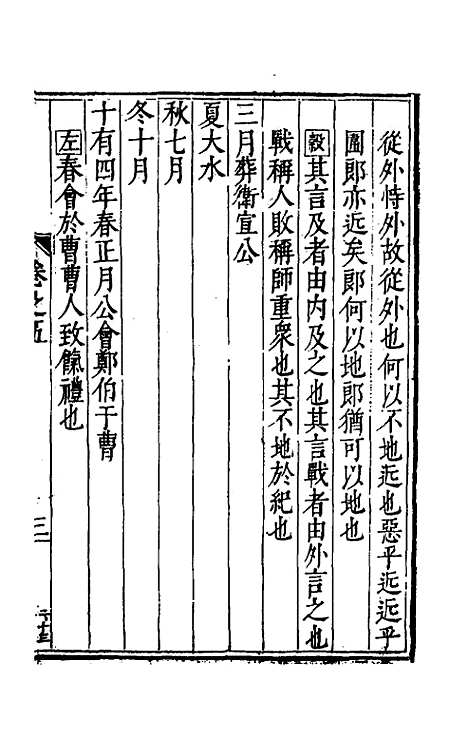 從外恃外故從外也何以不地近也惡乎近近乎
圍郎亦近矣郎何以地郎猶可以地也
穀其言及者由内及之也其言戰者由外言之也
戰稱人敗稱師重衆也其不地於紀也
三月葬衛宣公
夏大水
秋七月
冬十月
十有四年春正月公會鄭伯于曹
左春會於曹曹人致餼禮也
卷之五